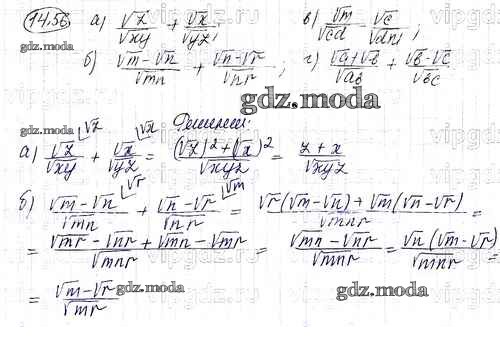 14.56 а) √z/√xy + √x/√yz; в) √m/√cd - √c/√dn;
б) (√m - √n)/√mn + (√n - √r)/√nr; г) (√a + √b)/√ab + (√b - √c)/√bc
gdz.moda
gdz.moda
Решение:
а) √z/√xy ⌊√z + √x/√yz ⌊√x = ((√z)² + (√x)²)/√xyz = (z + x)/√xyz
б) (√m - √n)/√mn ⌊√r + (√n - √r)/√nr ⌊√m = (√r(√m - √n) + √m(√n - √r))/√mnr =
= (√mr - √nr + √mn - √mr)/√mnr = (√mn - √nr)/√mnr = √n(√m - √r)/√mnr =
= (√m - √r)/√mr
gdz.moda
gdz.moda